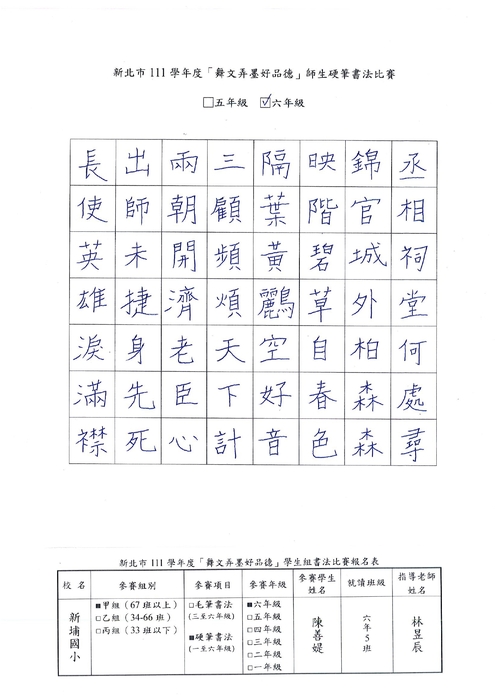 新北市111學年度「舞文弄墨好品德」師生硬筆書法比賽
□五年級 ☑六年級
丞相祠堂何處尋
錦官城外柏森森
映階碧草自春色
隔葉黃鸝空好音
三顧頻煩天下計
兩朝開濟老臣心
出師未捷身先死
長使英雄淚滿襟
新北市111學年度「舞文弄墨好品德」學生組書法比賽報名表
校名 參賽組別 參賽項目 參賽年級 參賽學生姓名 就讀班級 指導老師姓名
新埔國小
■甲組(67班以上)
□乙組(34-66班)
□丙組(33班以下)
□毛筆書法
(三至六年級)
■硬筆書法
(一至六年級)
■六年級
□五年級
□四年級
□三年級
□二年級
□一年級
陳善媞
六年5班
林昱辰